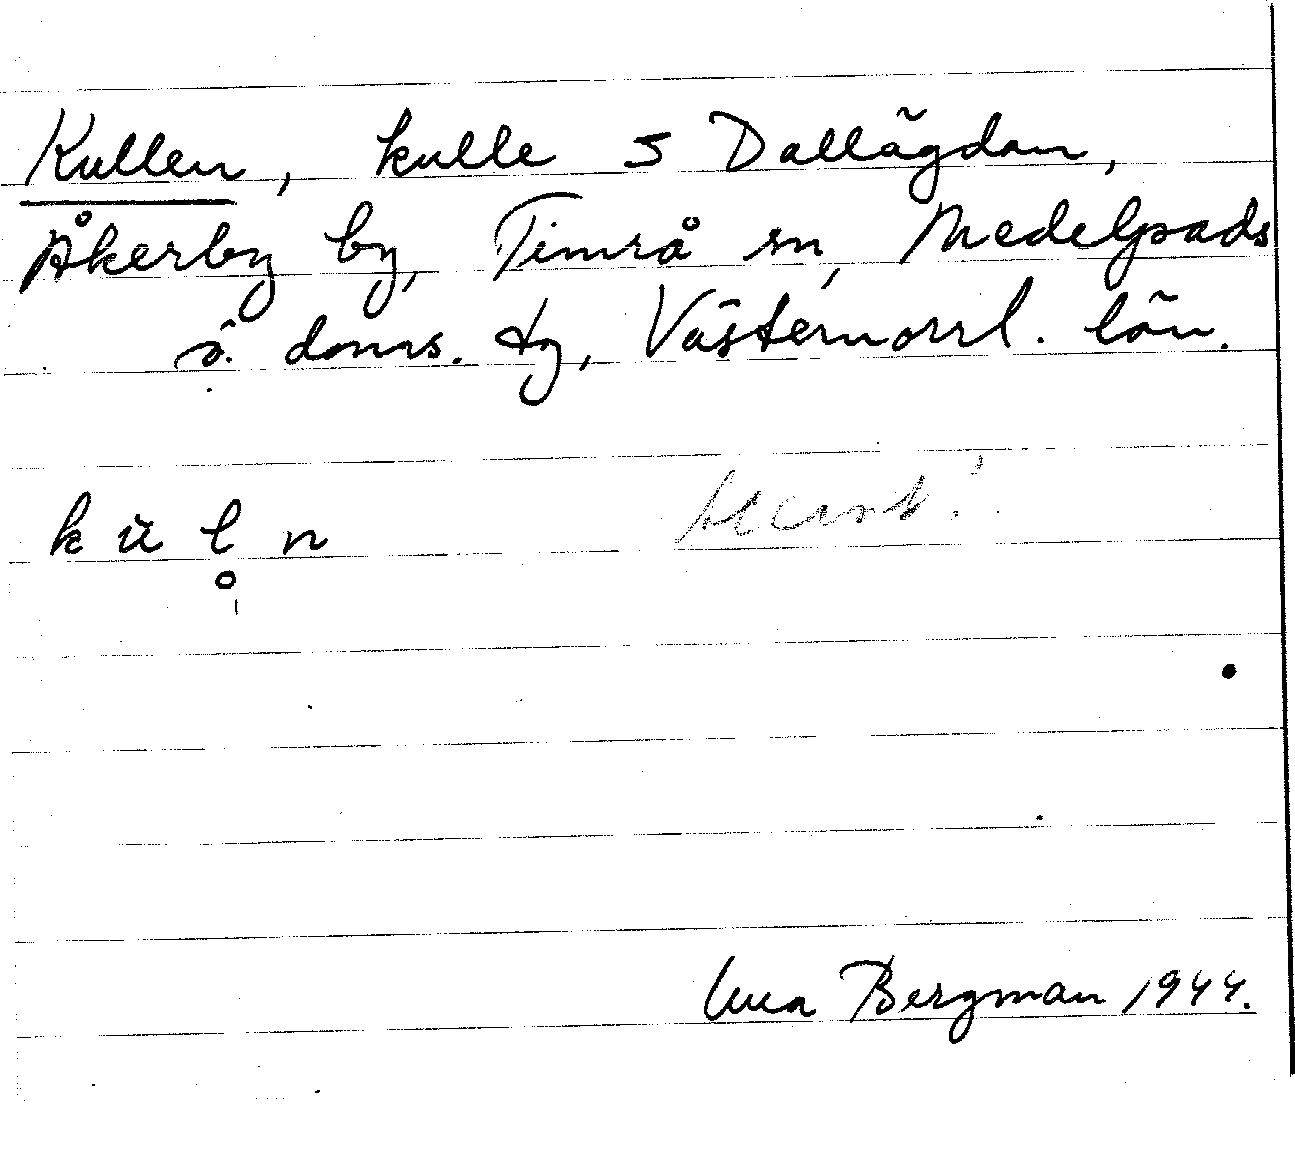 Kullen, kulle S Dallägdan,
Åkerby by, Timrå sn, Medelpads
ö. doms. tg, Västernorrl. län.
k ŭ l̥ n
accent!
Unea Bergman 1944.